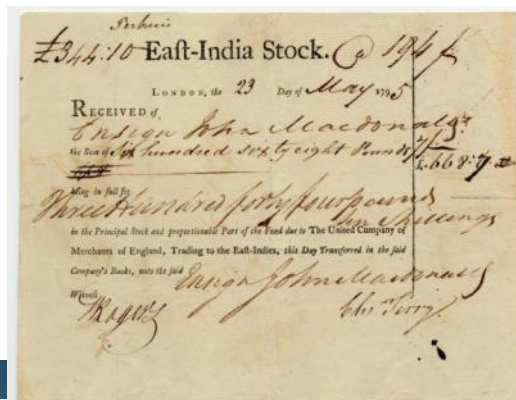 Perkins
£344:10 East-India Stock. @ 194
LONDON, the 23 Day of May 1795
RECEIVED of
Ensign John Macdonald
the Sum of Six hundred sixty eight Pounds 7/
£.668:7
being in full for
Three Hundred forty four pounds
ten Shillings
in the Principal Stock and proportionable Part of the Fund due to The United Company of
Merchants of England, Trading to the East-Indies, this Day Transferred in the said
Company's Books, unto the said
Ensign John Macdonald
Witness
Rogers
Chs Terry